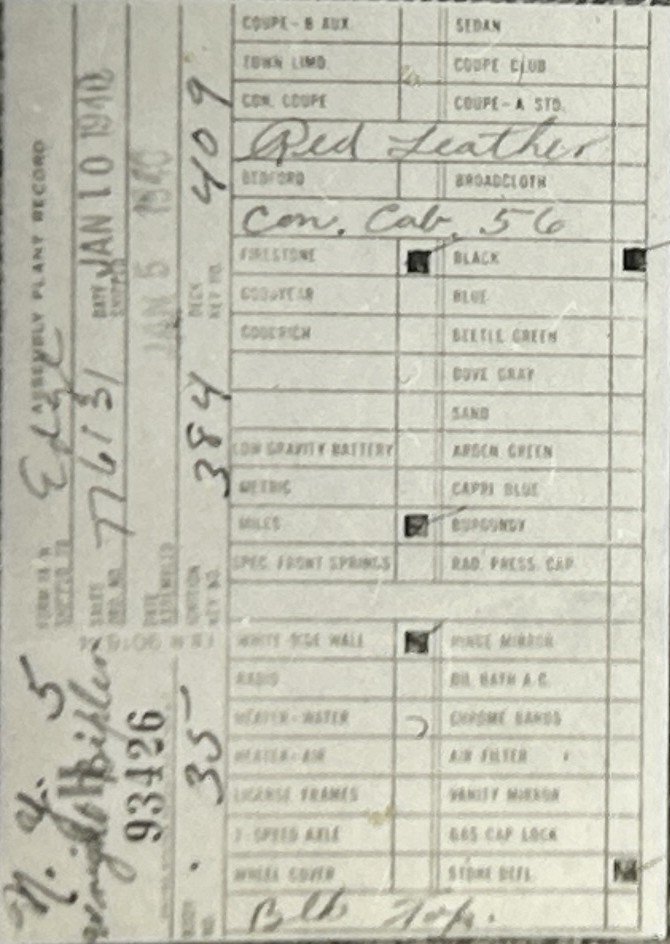 COUPE-B AUX. SEDAN
TOWN LIMO. COUPE CLUB
CON. COUPE COUPE-A STD.
Red Leather
BEDFORD BROADCLOTH
Con. Cab. 56
FIRESTONE BLACK
GOODYEAR BLUE
GOODRICH BEETLE GREEN
DOVE GRAY
SAND
LOW GRAVITY BATTERY ARDEN GREEN
METRIC CAPRI BLUE
MILES BURGUNDY
SPEC. FRONT SPRINGS RAD. PRESS. CAP
WHITE SIDE WALL HINGE MIRROR
RADIO OIL BATH A.C.
HEATER-WATER CHROME BANDS
HEATER-AIR AIR FILTER
LICENSE FRAMES VANITY MIRROR
2-SPEED AXLE GAS CAP LOCK
WHEEL COVER STONE DEFL.
Blk Top.
ASSEMBLY PLANT RECORD
SALES ORD. NO. 77613 DATE SHIPPED JAN 10 1940
DATE ASSEMBLED JAN 5 1940
IGNITION KEY NO. 384 DECK KEY NO. 409
N. Y. 5
93426
BODY NO. 35